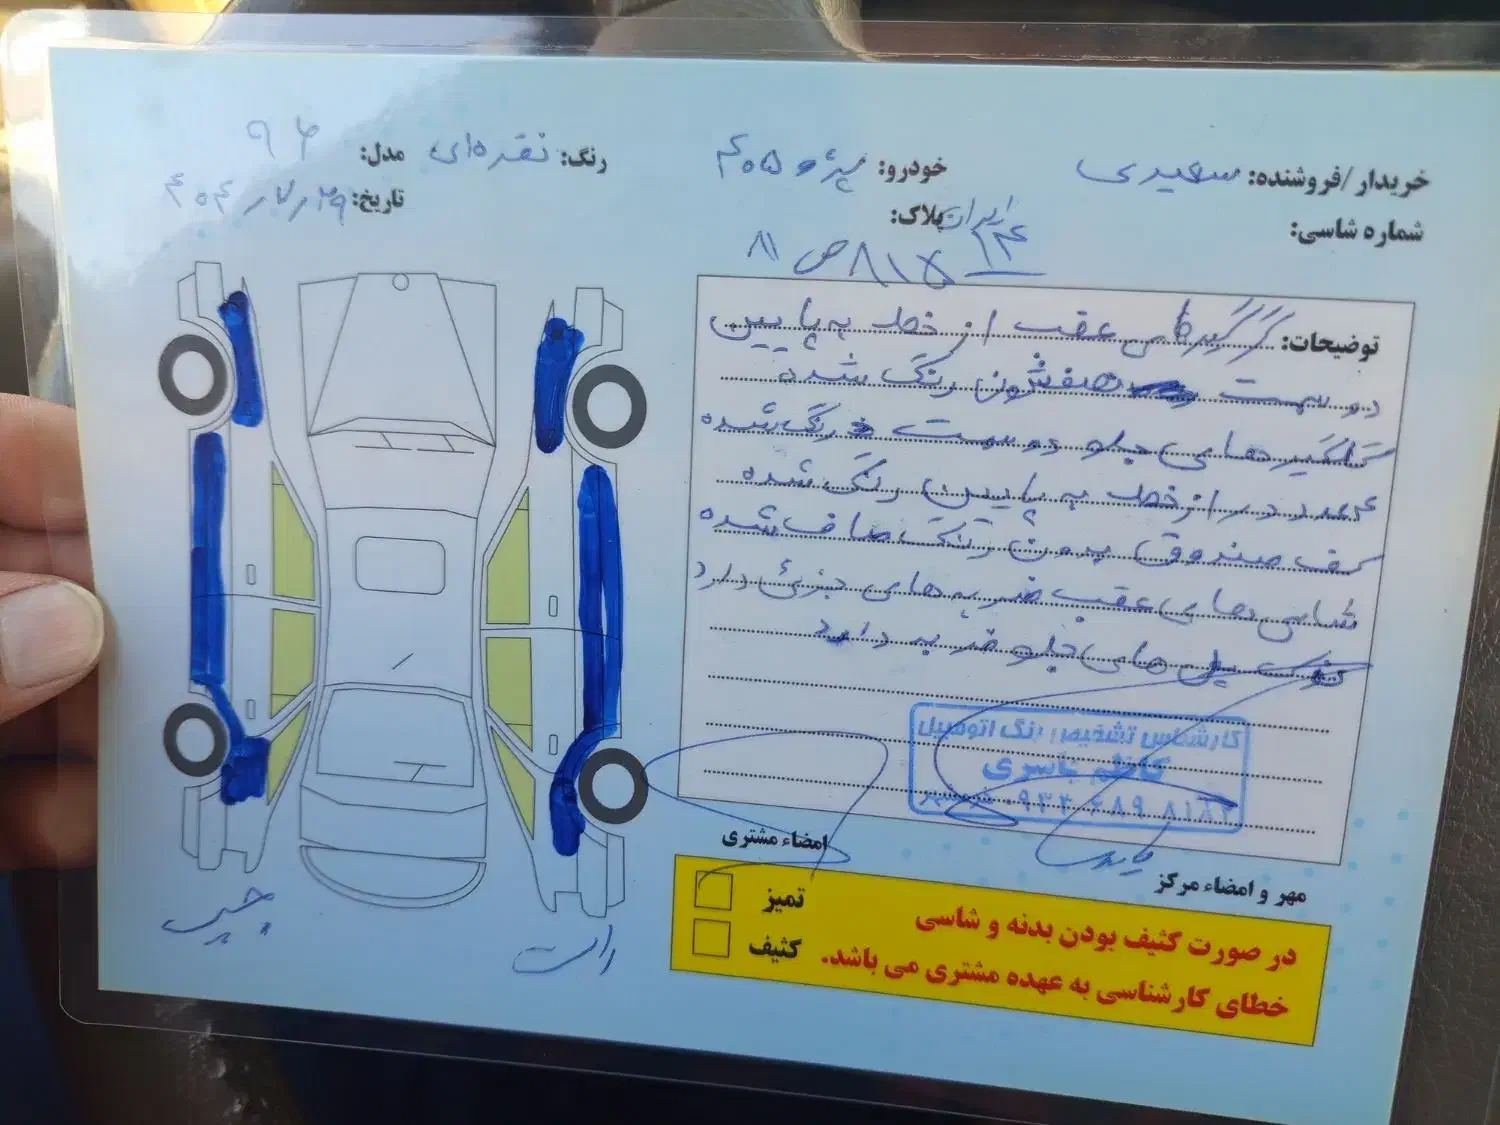 خریدار/فروشنده: سعیدی
خودرو: پژو ۴۰۵
رنگ: نقره‌ای
مدل: ۹۶
شماره شاسی:
پلاک: ایران ۱۴
۸۱ ص ۸۱۷
تاریخ: ۲۹ / ۷ / ۴۰۴
توضیحات: گلگیرهای عقب از خط به پایین
دو سمت رنگ شده
گلگیرهای جلو دو سمت رنگ شده
۴ عدد در از خط به پایین رنگ شده
کف صندوق بدون رنگ صاف شده
شاسی های عقب ضربه های جزئی دارد
های جلو ضربه دارد
کارشناس تشخیص رنگ اتومبیل
کاظم یاسری
امضاء مشتری
مهر و امضاء مرکز
تمیز
کثیف
در صورت کثیف بودن بدنه و شاسی
خطای کارشناسی به عهده مشتری می باشد.
چپ
راست